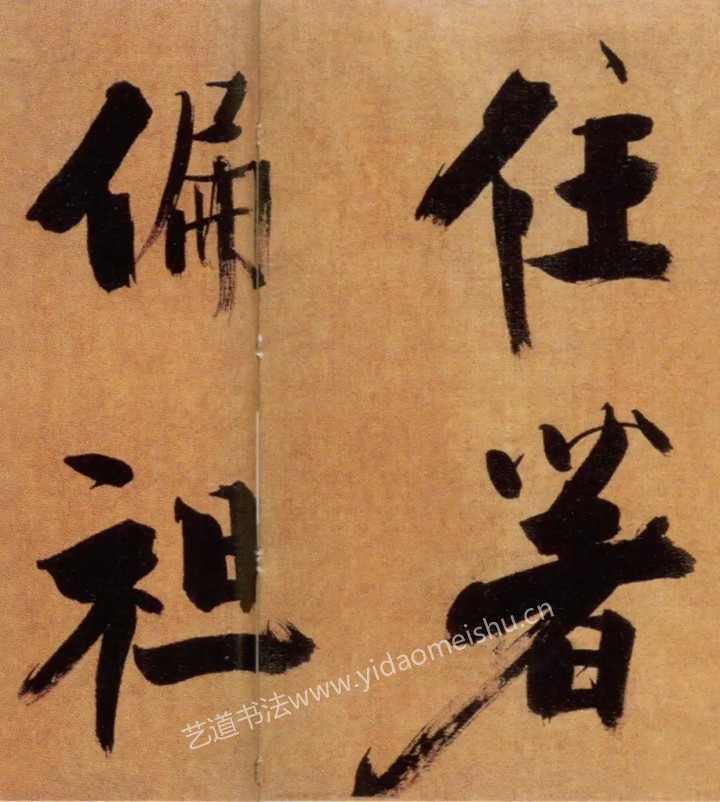 住著
偏袒
艺道书法www.yidaomeishu.cn